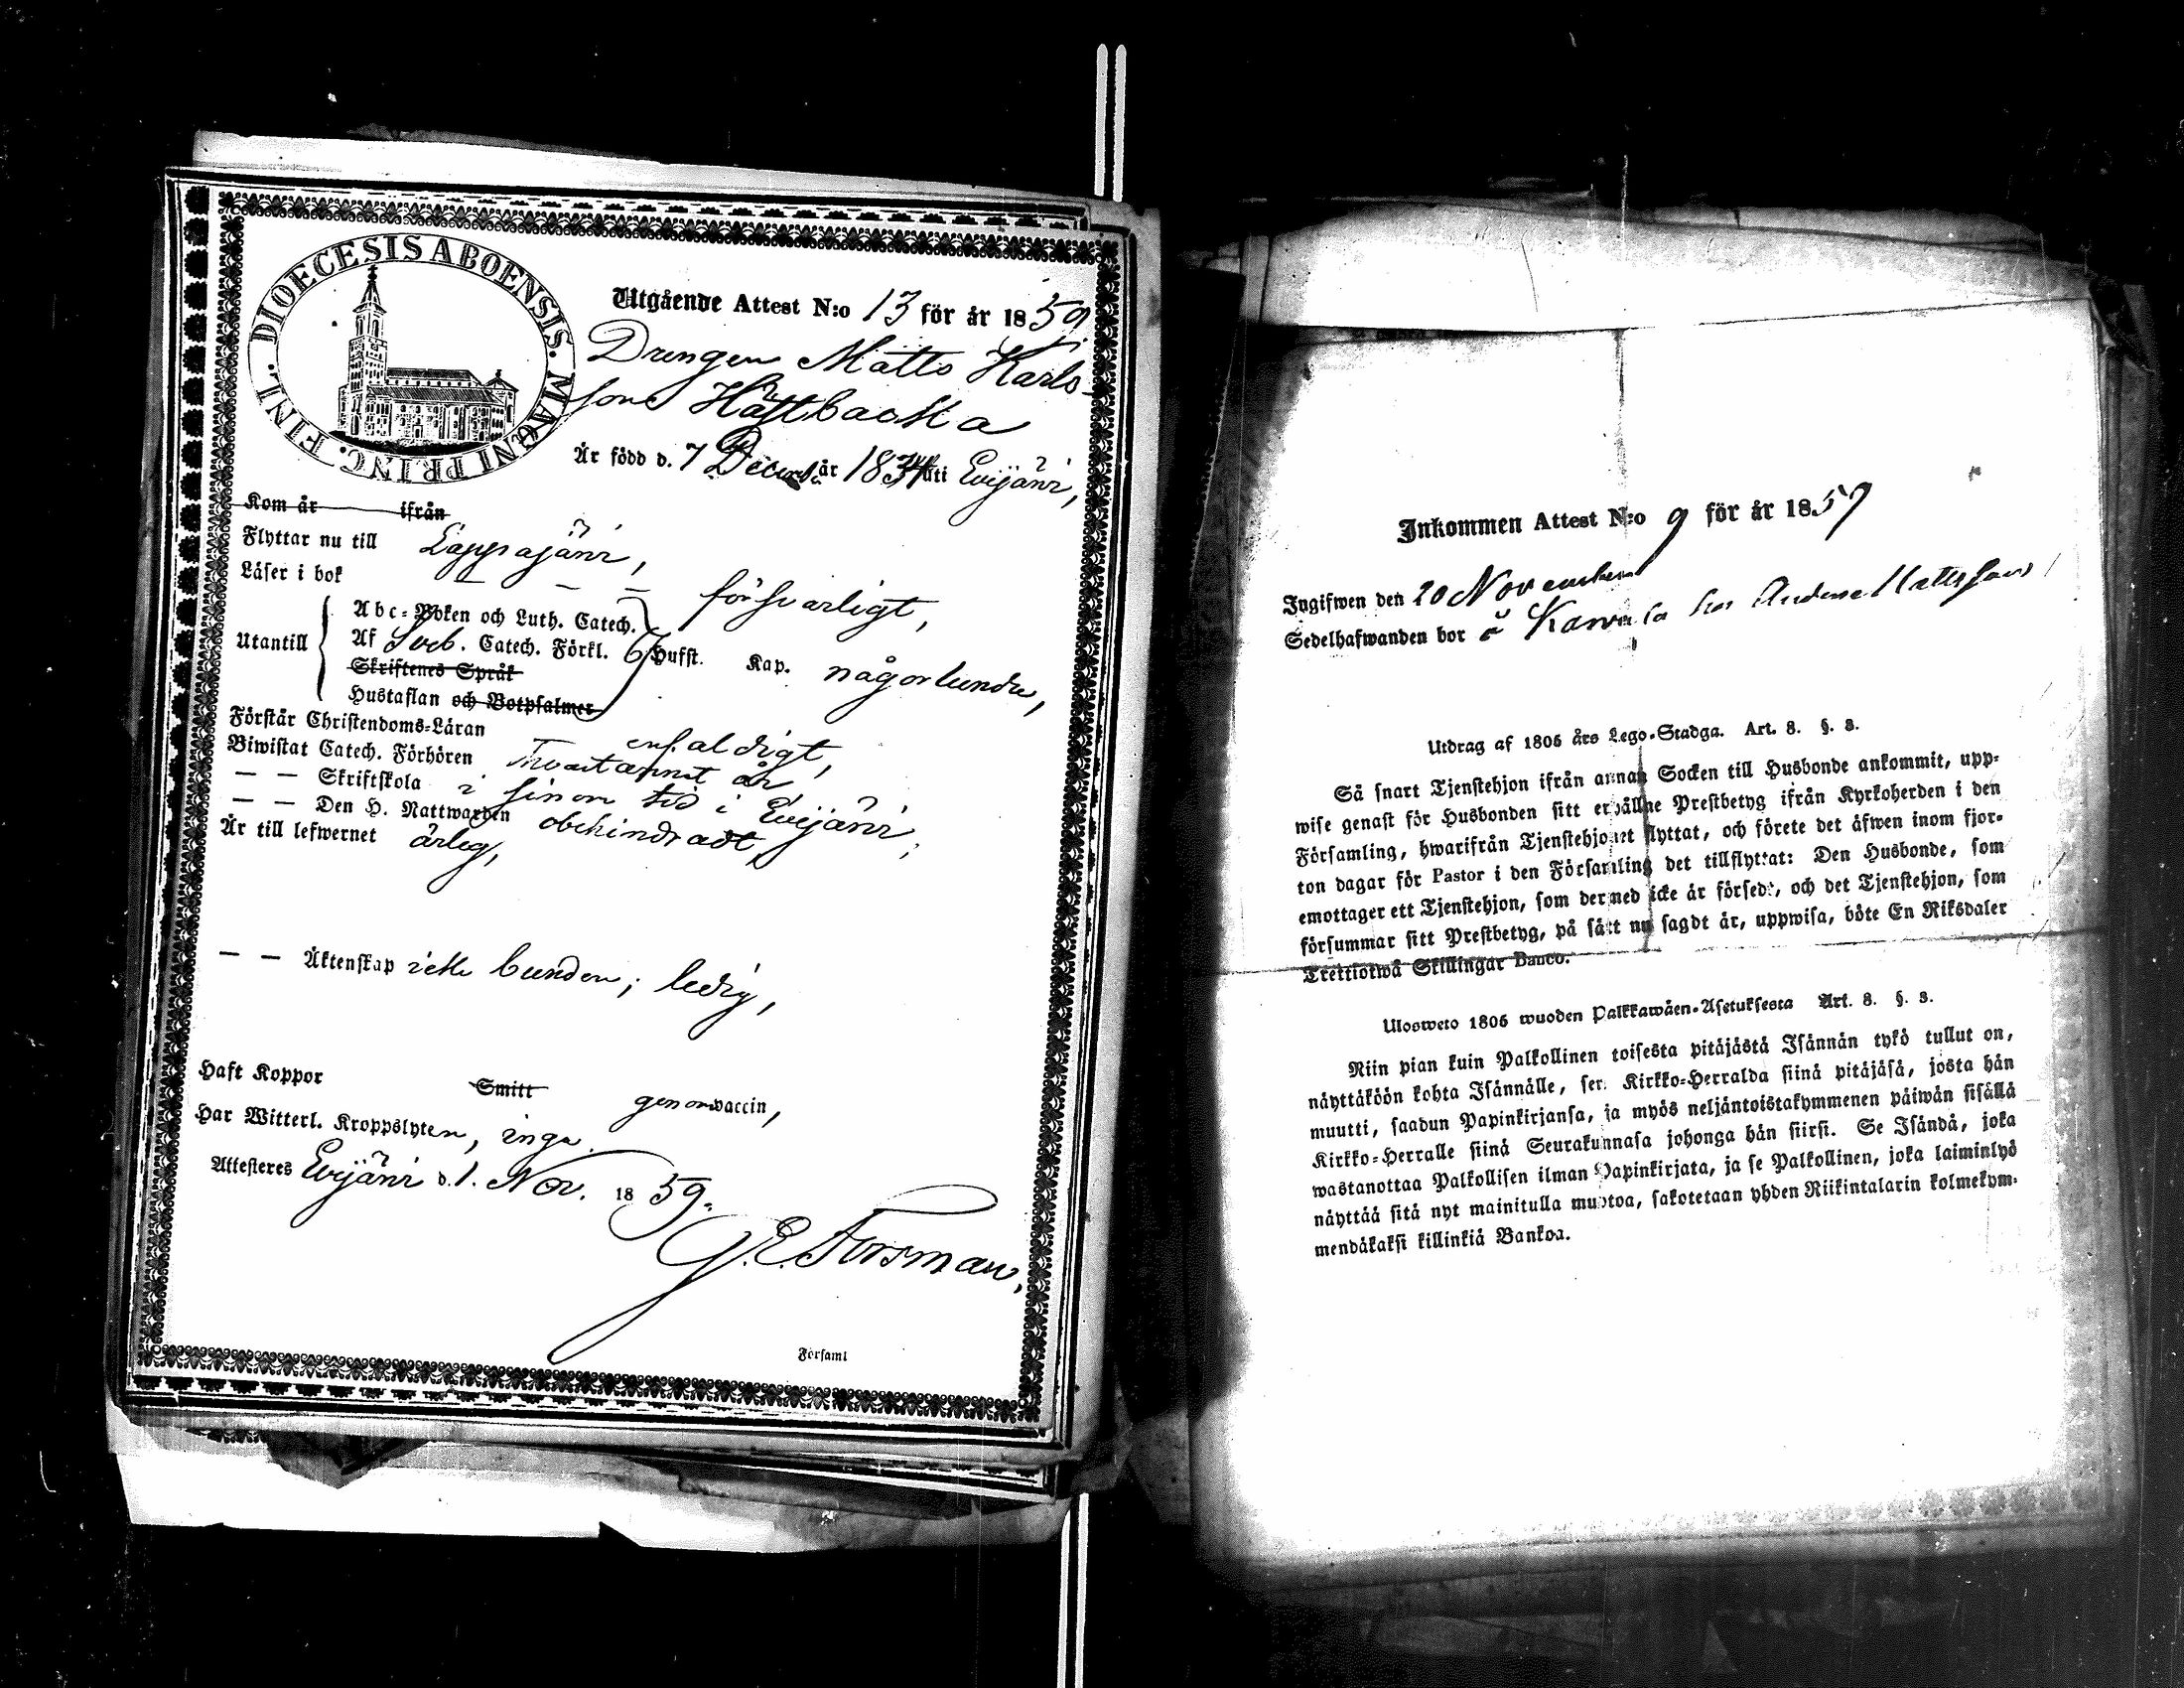 DIOECESIS ABOENSIS. MAGNI PRINC. FINL.
Utgående Attest N:o 13 för år 1859.
Drengen Matts Karls-
son Hästbacka
Är född d. 7 Decemb. år 1834 uti Evijärvi,
Kom år ifrån
Flyttar nu till Lappajärvi,
Läser i bok — — — försvarligt,
Utantill
Abc-Boken och Luth. Catech.
Af Sveb. Catech. Förkl. 6 Hufst. Kap. någorlunda,
Skriftenes Språk
Hustaflan och Botpsalmer
Förstår Christendoms-Läran enfaldigt,
Biwistat Catech. Förhören hvartannat år
— — Skriftskola i sinom tid i Evijärvi,
— — Den H. Nattwarden obehindradt,
Är till lefwernet ärlig,
— — Äktenskap icke bunden; ledig,
Haft Koppor Smitt genom vaccin,
Har Witterl. Kroppslyten, inga.
Attesteres Evijärvi d. 1. Nov. 1859.
G. E. Forsman,
Församl
Inkommen Attest N:o 9 för år 1859
Ingifwen den 20 November
Sedelhafwanden bor å hos Anders Mattsson
Utdrag af 1805 års Lego-Stadga. Art. 8. §. 3.
Så snart Tjenstehjon ifrån annan Socken till Husbonde ankommit, upp-
wise genast för Husbonden sitt erhållne Prestbetyg ifrån Kyrkoherden i den
Församling, hwarifrån Tjenstehjonet flyttat, och förete det äfwen inom fjor-
ton dagar för Pastor i den Församling det tillflyttat: Den Husbonde, som
emottager ett Tjenstehjon, som dermed icke är försedt, och det Tjenstehjon, som
försummar sitt Prestbetyg, på sätt nu sagdt är, uppwisa, böte En Riksdaler
Trettiotwå Skillingar Banco.
Ulosweto 1805 wuoden Palkkawäen-Asetuksesta Art. 8. §. 3.
Niin pian kuin Palkollinen toisesta pitäjästä Isännän tykö tullut on,
näyttäköön kohta Isännälle, sen Kirkko-Herralda siinä pitäjäsä, josta hän
muutti, saadun Papinkirjansa, ja myös neljäntoistakymmenen päiwän sisällä
Kirkko-Herralle siinä Seurakunnasa johonga hän siirsi. Se Isändä, joka
wastanottaa Palkollisen ilman Papinkirjata, ja se Palkollinen, joka laiminlyö
näyttää sitä nyt mainitulla muotoa, sakotetaan yhden Riikintalarin kolmekym-
mendäkaksi killinkiä Bankoa.